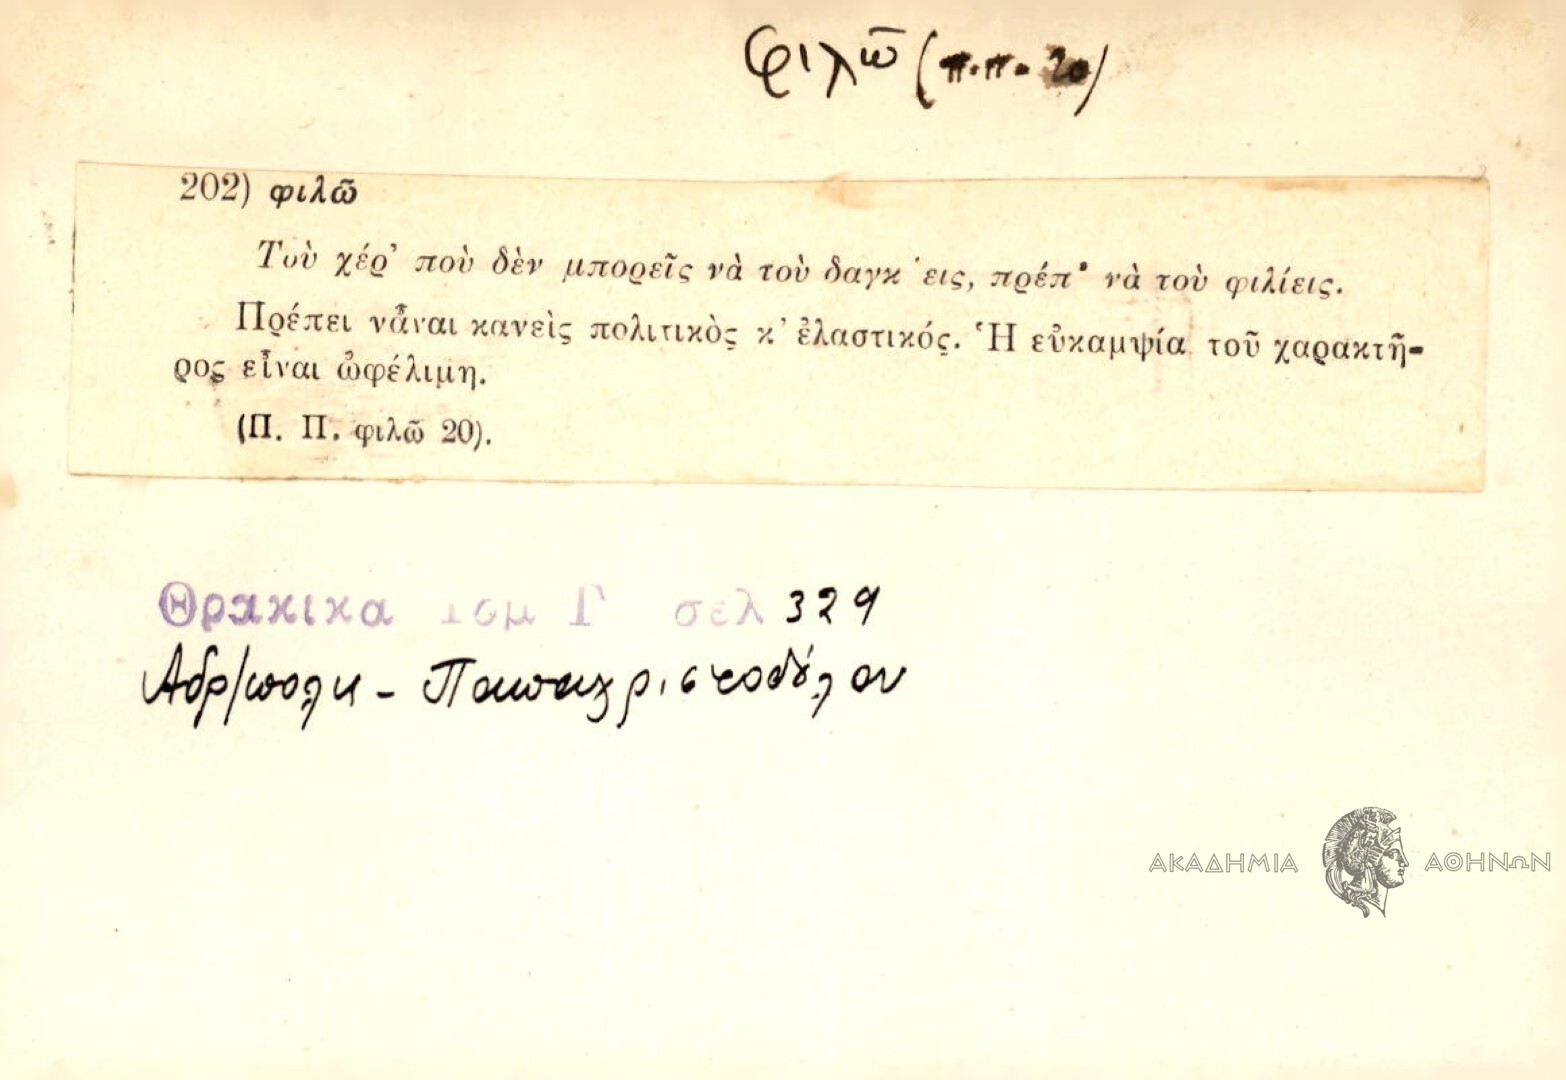 φιλῶ (π.π. 20)
202) φιλῶ
Τοὺ χέρ' ποὺ δὲν μπορεῖς νὰ τοὺ δαγκ 'εις, πρέπ' νὰ τοὺ φιλίεις.
Πρέπει νἆναι κανεὶς πολιτικὸς κ' ἐλαστικός. Ἡ εὐκαμψία τοῦ χαρακτῆ-
ρος εἶναι ὠφέλιμη.
(Π. Π. φιλῶ 20).
Θρακικα τομ Γ σελ 329
Αδρ/πολη - Παπαχριστοδούλου
ΑΚΑΔΗΜΙΑ ΑΘΗΝΩΝ